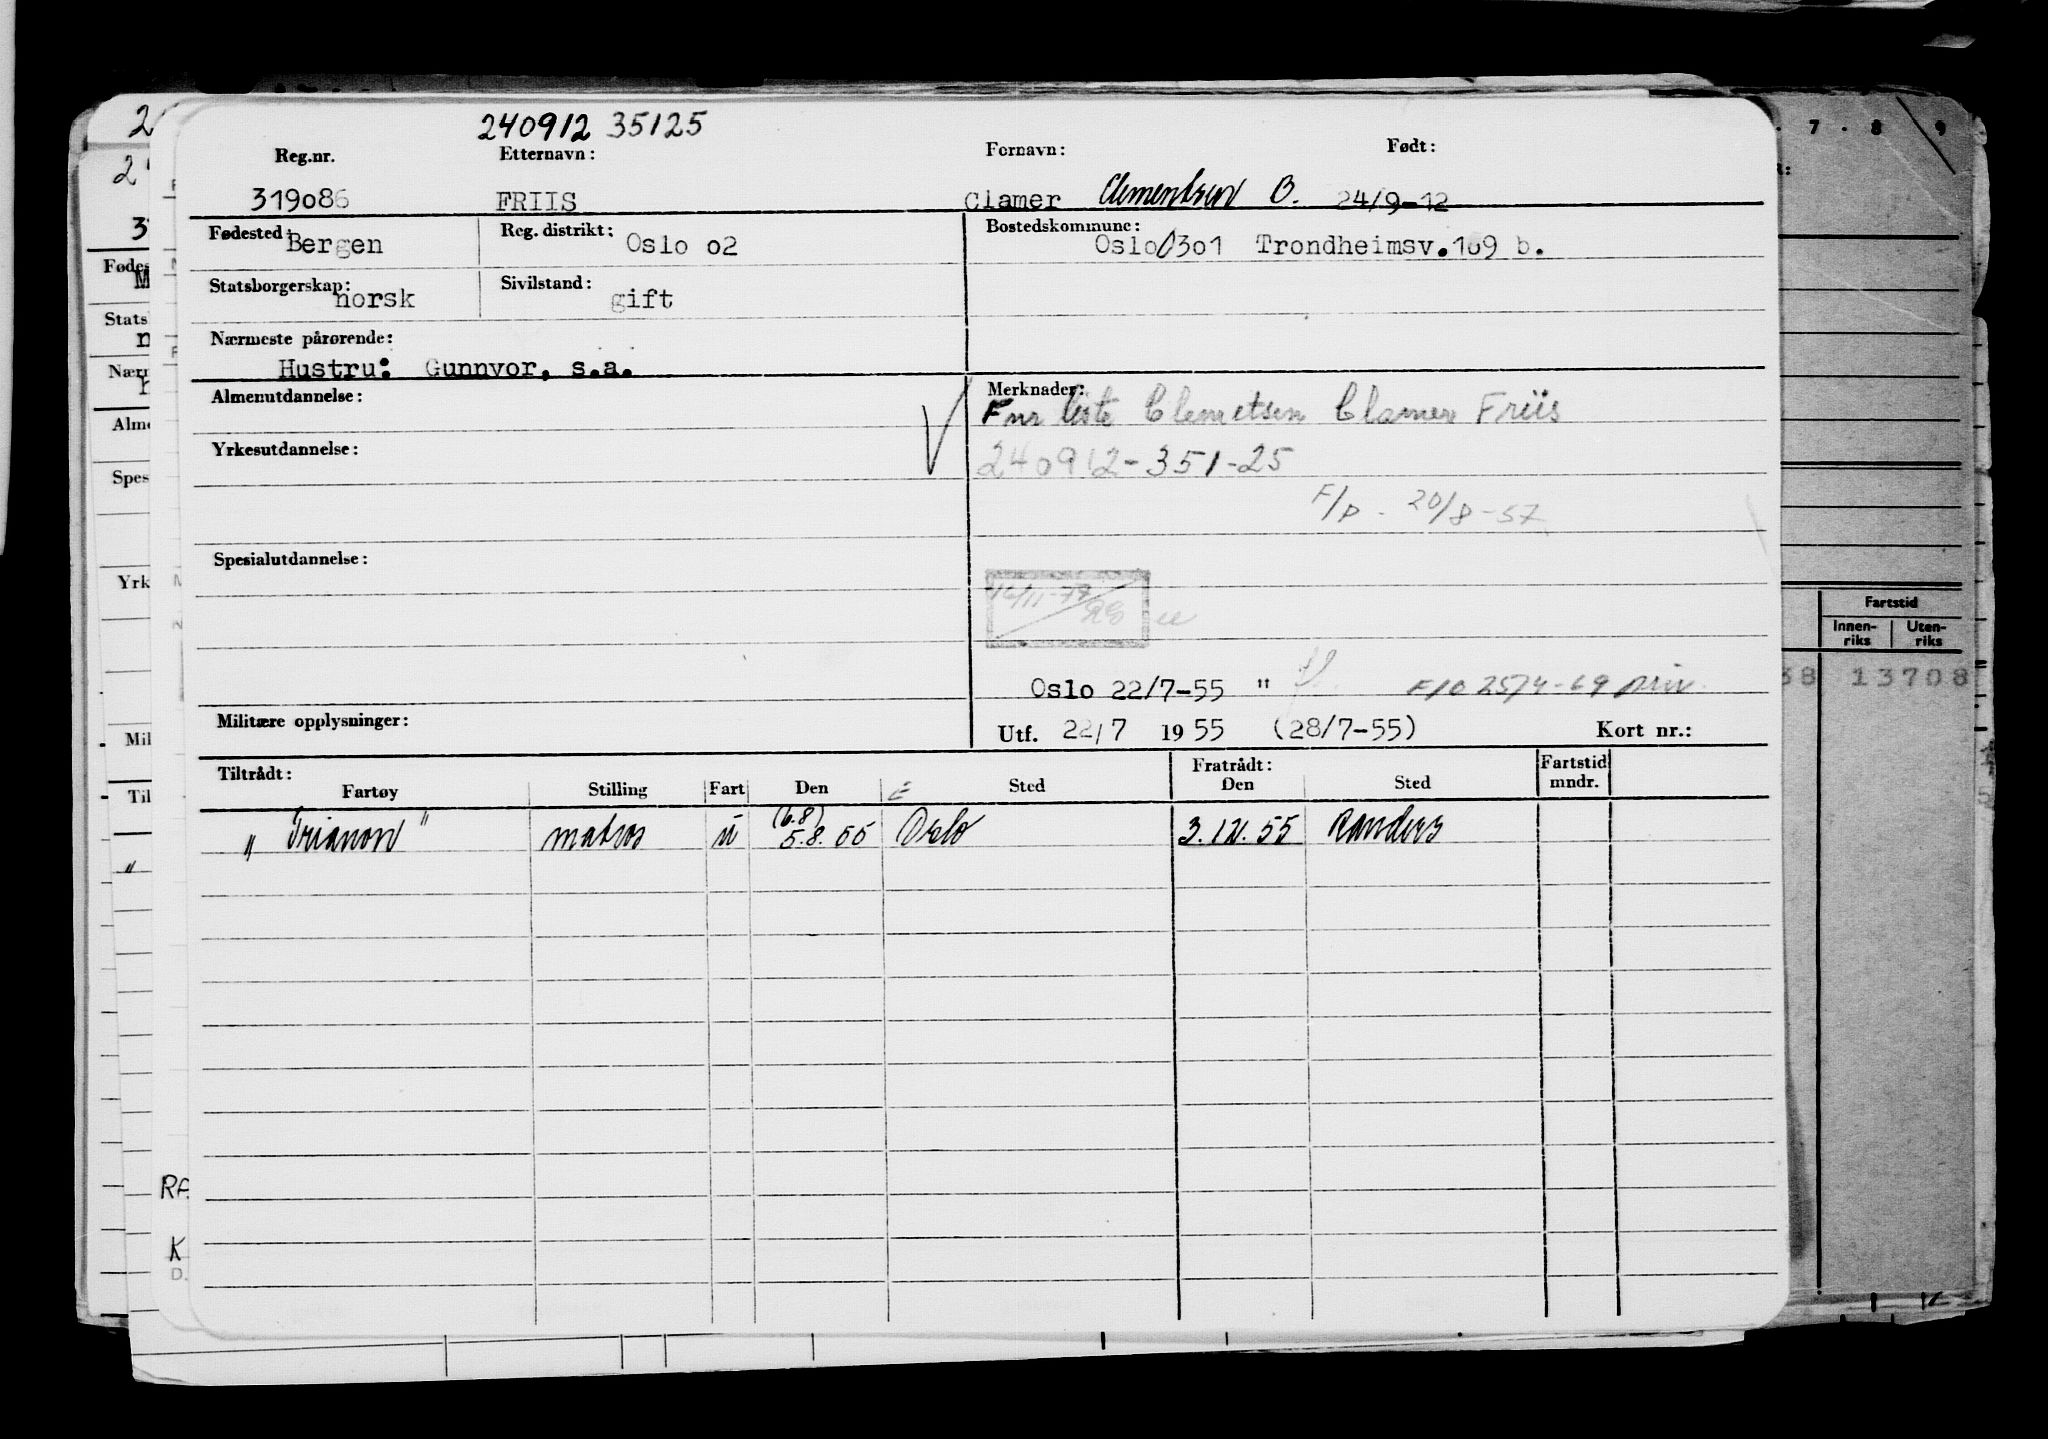 240912 35125
Reg.nr. Etternavn: Fornavn: Født:
319086 FRIIS Clamer Clementsen B. 24/9-12
Fødested: Bergen Reg. distrikt: Oslo 02 Bostedskommune: Oslo 0301 Trondheimsv.169 b.
Statsborgerskap: norsk Sivilstand: gift
Nærmeste pårørende:
Hustru: Gunnvor, s.a.
Almenutdannelse: Merknader:
Fnr liste Clemetsen Clamer Friis
Yrkesutdannelse: 240912-351-25
F/P. 20/8-57
Spesialutdannelse:
Oslo 22/7-55 "
Militære opplysninger: Utf. 22/7 1955 (28/7-55) Kort nr.:
Tiltrådt: Fratrådt: Fartstid
Fartøy Stilling Fart Den Sted Den Sted mndr.
(6.8)
" Trianon " matros u 5.8.55 Oslo 3.12.55 Randers
7 8 9
Fartstid
Innen- Uten-
riks riks
38 13708